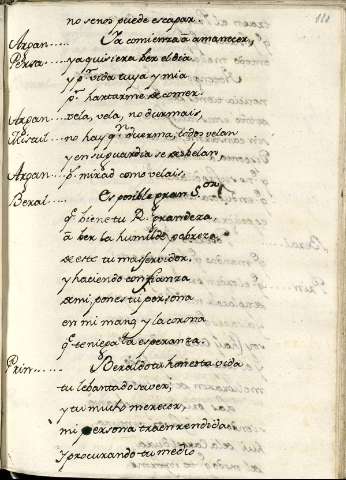 no senos puede escapar
Arpan..... Ya comienza à amanecer,
Persa.... ya quisiera ber el dia
y pr vida tuya y mia
pr hartarme de comer.
Arpan.... vela, vela, no durmais,
Misail... no hay qn duerma, todos velan
y en su guardia se desbelan
Arpan... pr mirad como velais.
Beral.... Es posible gran Sor
q bienetu Rl grandeza,
à ber la humilde pobreza
de este tu mas servidor.
y haciendo confianza
de mi pones tu persona
en mi mano, y la corona
q tenie la esperanza.
Prin..... Beraldo tu honesta vida
tu lebantado saver,
y tu mucho merecer,
mi persona traen rendida
y procurando tu medio